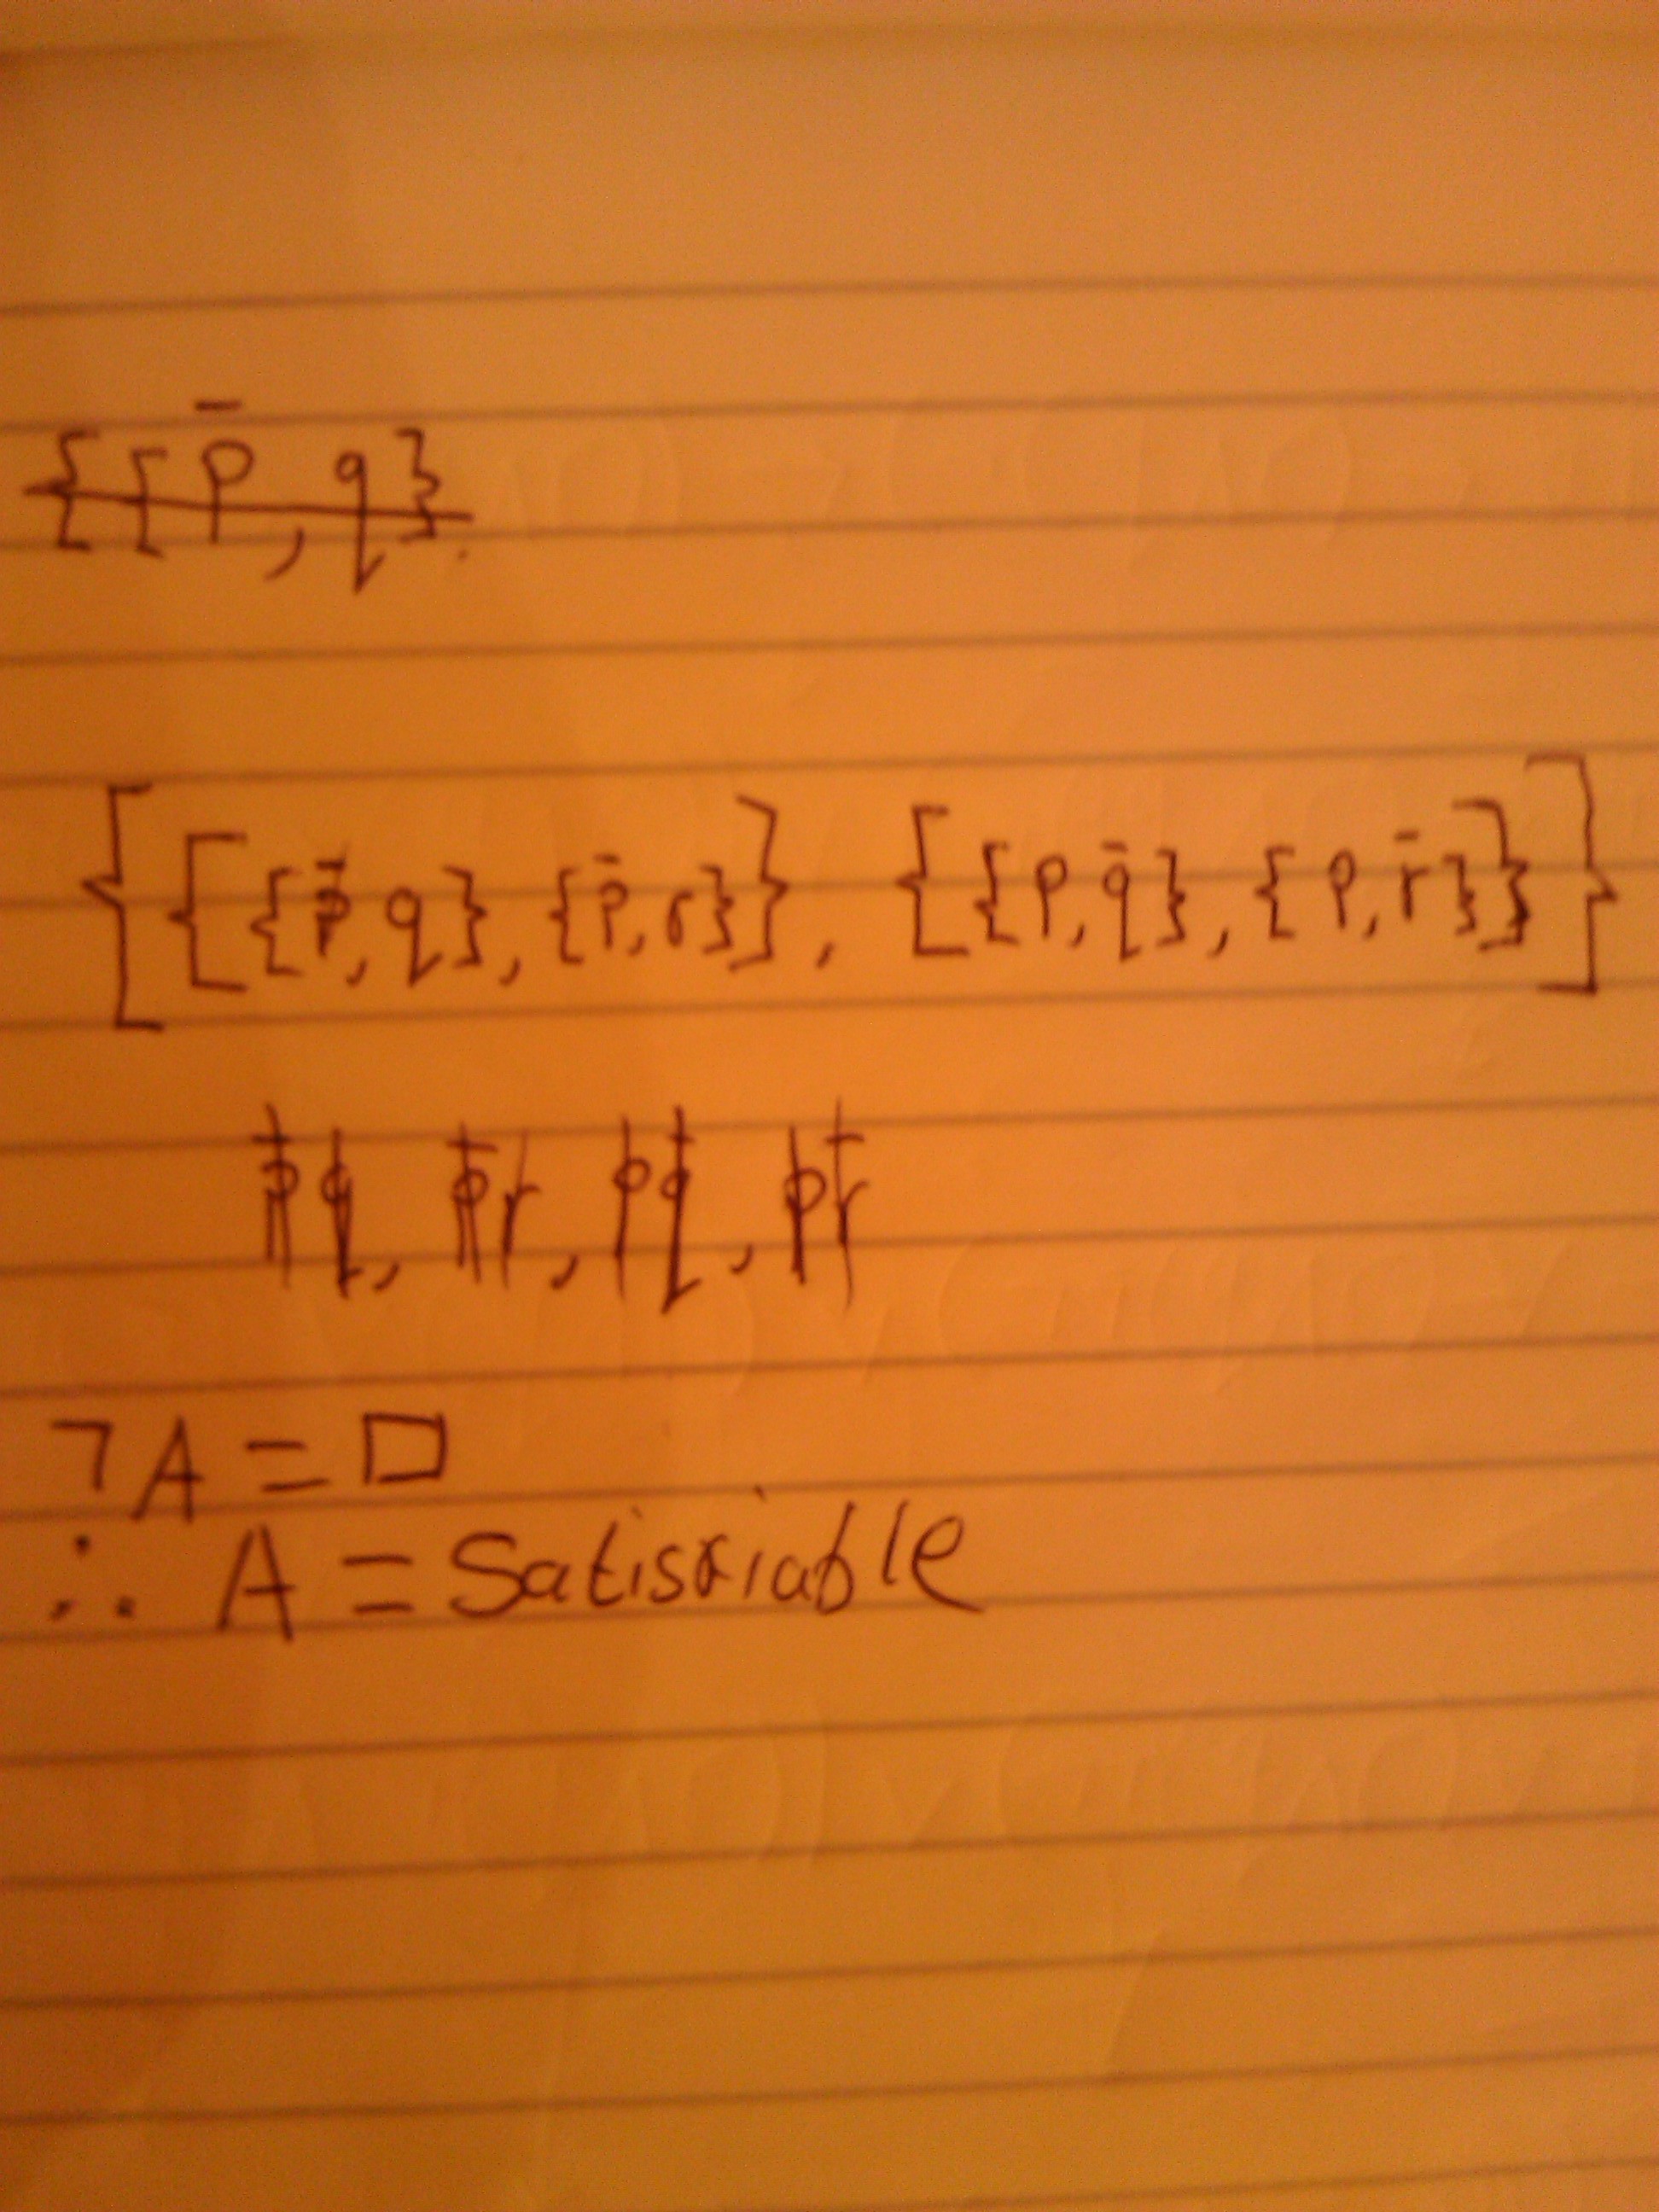 {{p̄, q}.
{{{p̄, q}, {p̄, r}}, {{p, q̄}, {p, r̄}}}
p̄q, p̄r, pq̄, pr̄
¬A = □
∴ A = Satisfiable